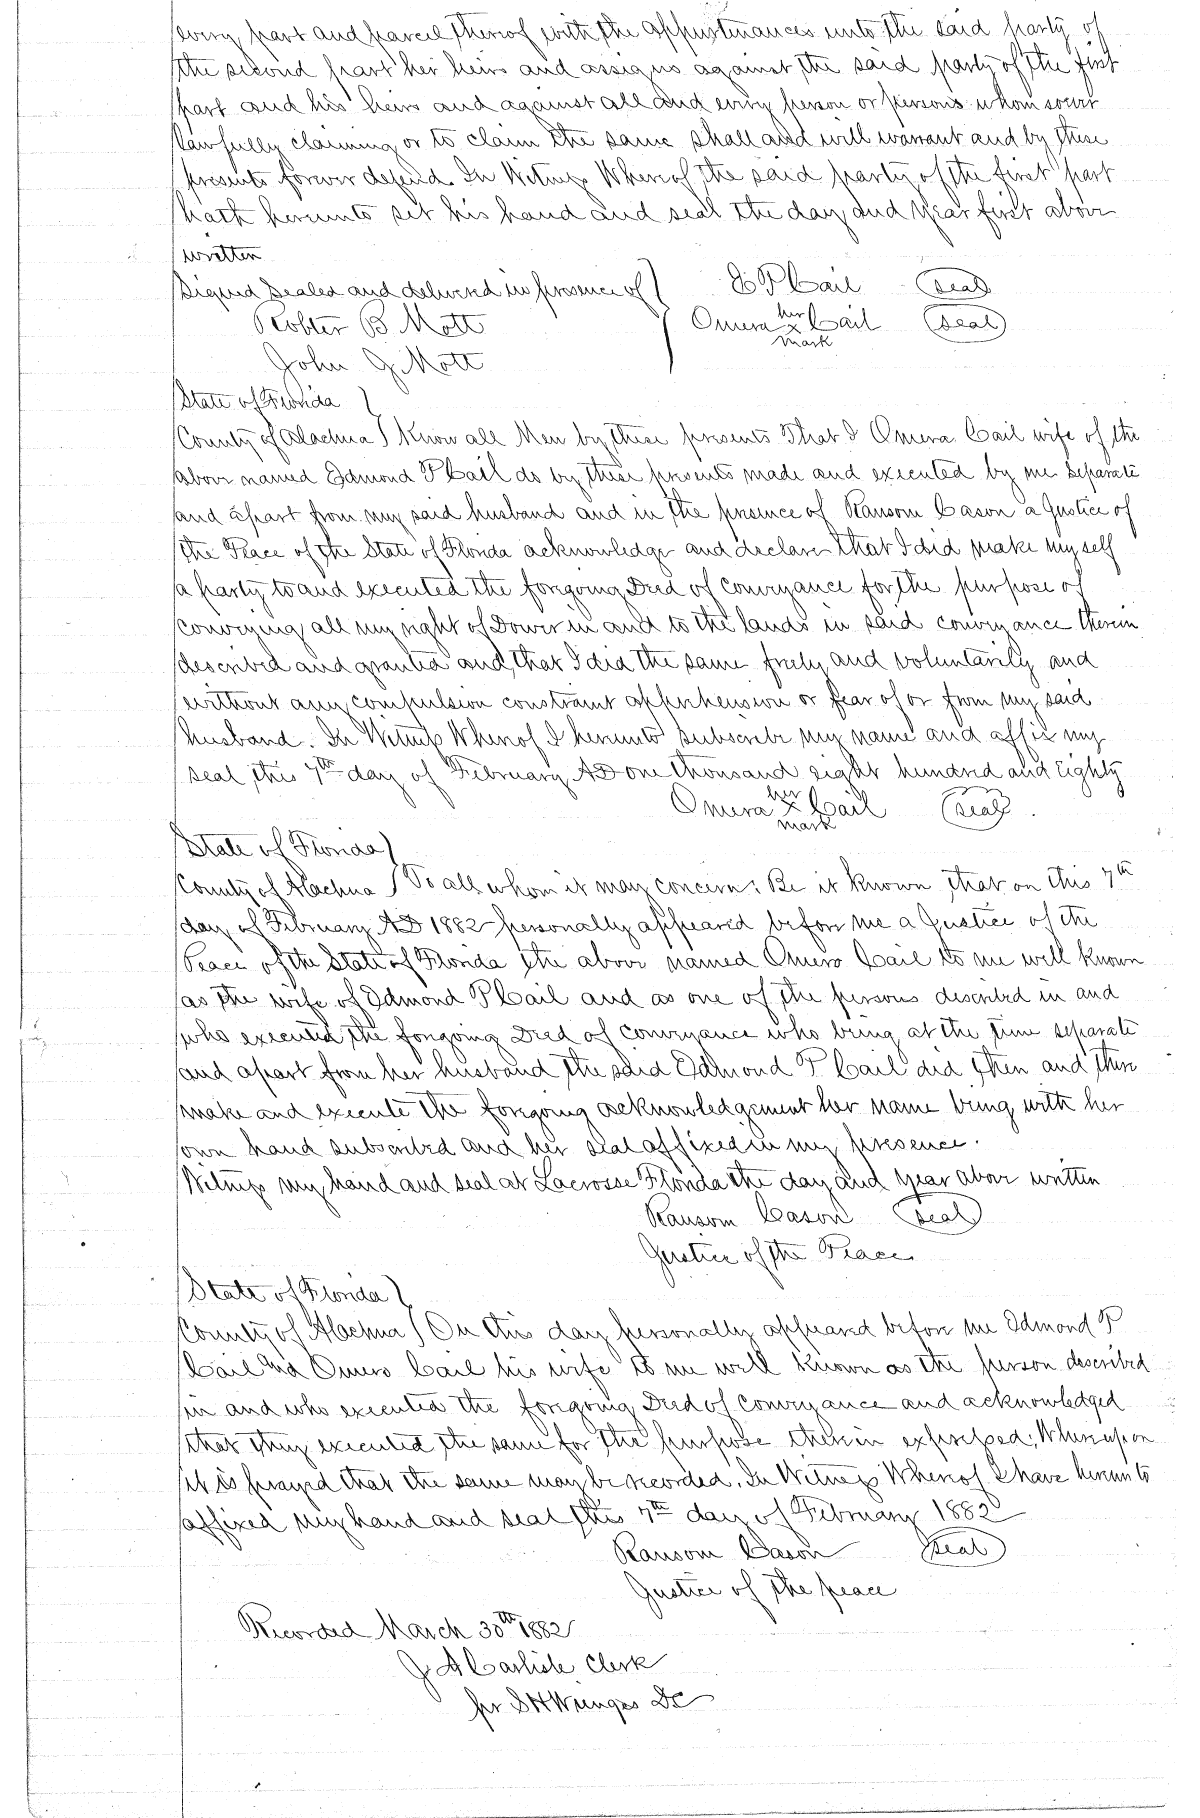 every part and parcel thereof with the appurtenances unto the said party of
the second part her heirs and assigns against the said party of the first
part and his heirs and against all and every person or persons whom soever
lawfully claiming or to claim the same shall and will warrant and by these
presents forever defend. In Witness Whereof the said party of the first part
hath hereunto set his hand and seal the day and year first above
written
Signed Sealed and delivered in presence of } E P Cail (seal)
Robter B Mott } Omera her x mark Cail (seal)
John G Mott
State of Florida }
County of Alachua } Know all Men by these presents That I Omera Cail wife of the
above named Edmond P Cail do by these presents made and executed by me separate
and apart from my said husband and in the presence of Ransom Cason a Justice of
the Peace of the State of Florida acknowledge and declare that I did make myself
a party to and executed the foregoing Deed of Conveyance for the purpose of
conveying all my right of Dower in and to the lands in said conveyance therein
described and granted and that I did the same freely and voluntarily and
without any compulsion constraint apprehension or fear of or from my said
husband. In Witness Whereof I hereunto subscribe my name and affix my
seal this 7th day of February AD one thousand eight hundred and Eighty
Omera her x mark Cail (seal)
State of Florida }
County of Alachua } To all whom it may concern: Be it known that on this 7th
day of February AD 1882 personally appeared before me a Justice of the
Peace of the State of Florida the above named Omero Cail to me well known
as the wife of Edmond P Cail and as one of the persons described in and
who executed the forgoing Deed of Conveyance who being at the time separate
and apart from her husband the said Edmond P Cail did then and there
make and execute the foregoing acknowledgement her name being with her
own hand subscribed and her seal affixed in my presence.
Witness my hand and seal at Lacrosse Florida the day and year above written
Ransom Cason (seal)
Justice of the Peace
State of Florida }
County of Alachua } On this day personally appeared before me Edmond P
Cail and Omero Cail his wife to me well known as the person described
in and who executed the foregoing Deed of Conveyance and acknowledged
that they executed the same for the purpose therein expressed; Whereupon
it is prayed that the same may be recorded. In Witness Whereof I have hereunto
affixed my hand and seal this 7th day of February 1882
Ransom Cason (seal)
Justice of the peace
Recorded March 30th 1882
J A Carlisle Clerk
per S H Wienges DC